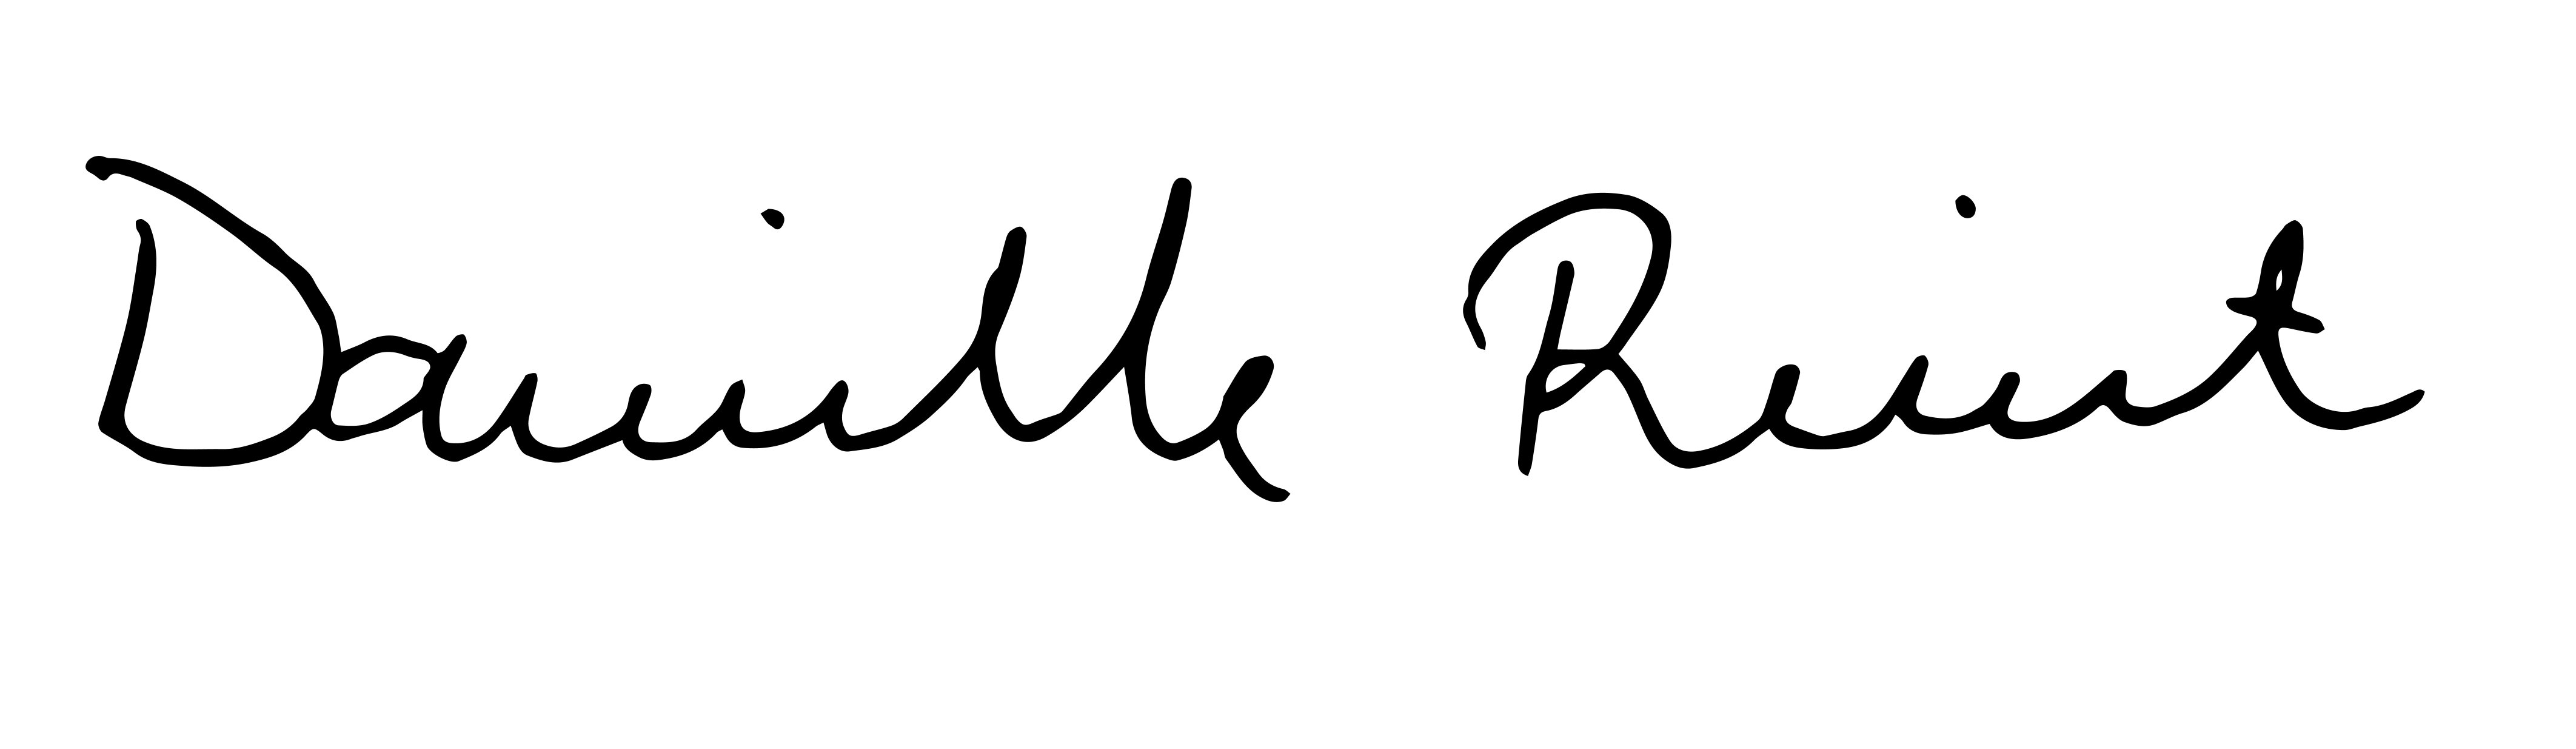 Danielle Reint